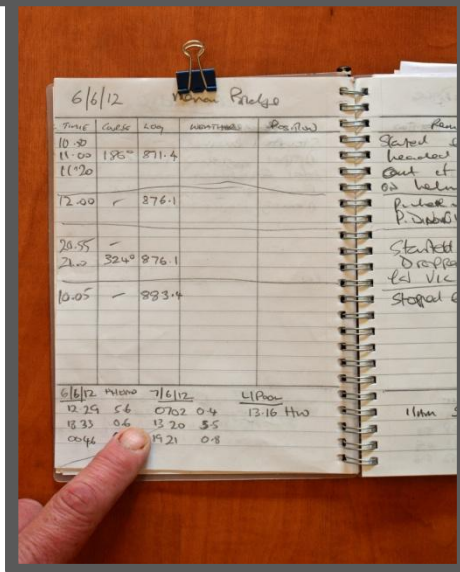 6/6/12 Bridge
TIME COURSE LOG WEATHER POSITION
10.50
11.00 186° 871.4
11.20
12.00 - 876.1
20.55 -
324° 876.1
10.05 - 883.4
6/6/12 7/6/12 L/Pool
12.29 5.6 0702 0.4 13.16 HW
18.33 0.6 13 20 5.5
0046 19 21 0.8
Started
headed
out of
on helm
Started
Dropped
Stopped